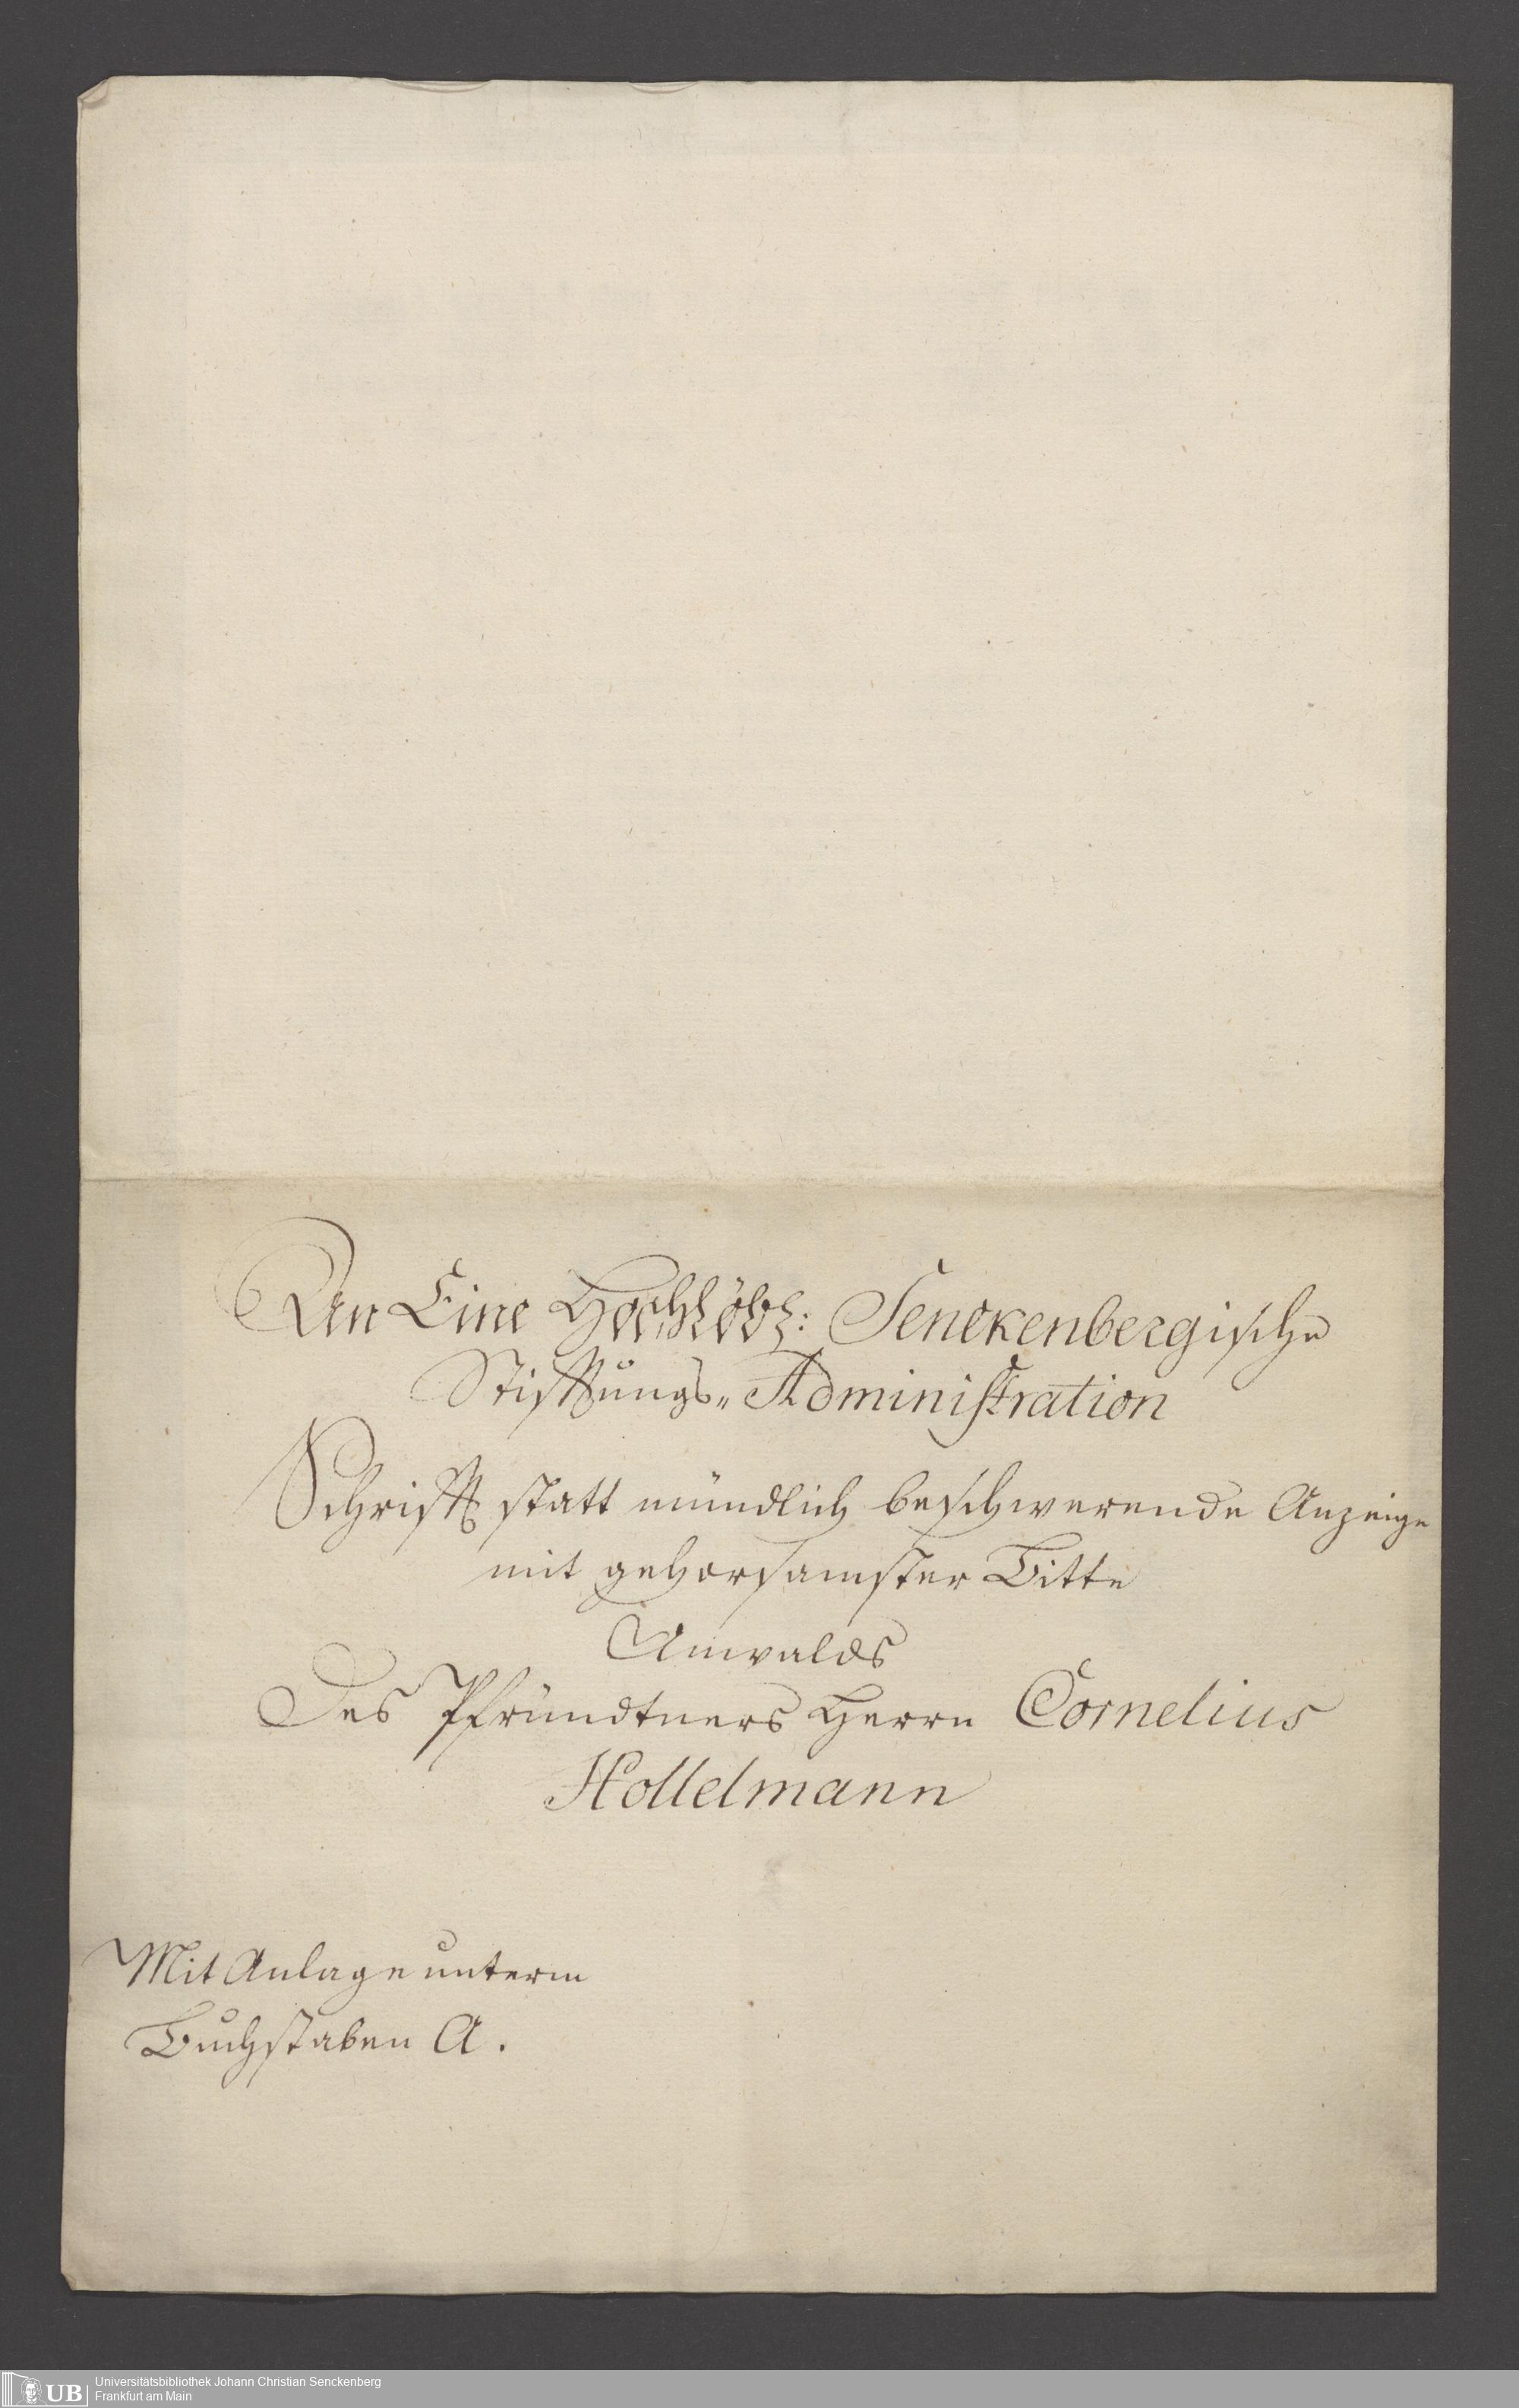 An Eine Hochlöbl: Senckenbergische
Stifftungs„ Administration
Schrifft statt mündlich beschwerende Anzeige
mit gehorsamster Bitte
Anwalds
Des Pfründtners Herrn Cornelius
Hollelmann
Mit Anlage unterm
Buchstaben A.
UB Universitätsbibliothek Johann Christian Senckenberg
Frankfurt am Main